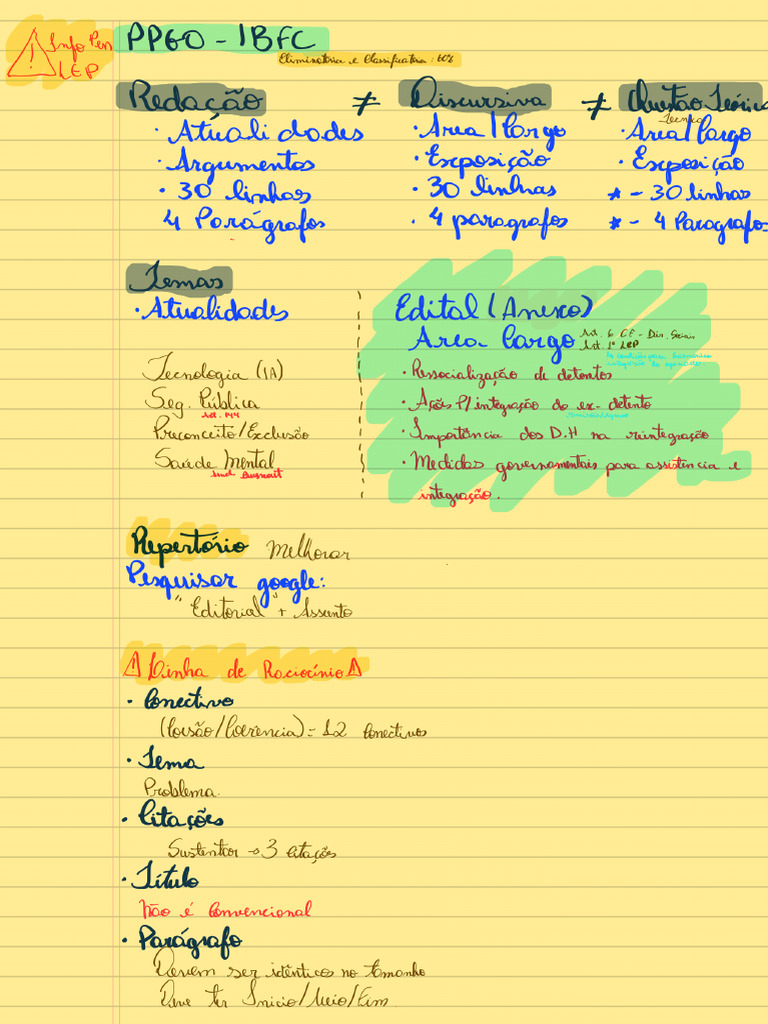 Info Pen
LEP
PPGO - IBFC
Eliminatória e Classificatória: 60%
Redação ≠ Discursiva ≠ Questão Teórica
Técnica
· Atualidades
· Argumentos
· 30 linhas
4 Parágrafos
· Area/Cargo
· Exposição
· 30 linhas
· 4 paragrafos
· Area/Cargo
· Exposição
* - 30 linhas
* - 4 Paragrafos
Temas
· Atualidades
Tecnologia (IA)
Seg. Pública
Art. 144
Preconceito/Exclusão
Saúde Mental
Sind. Burnout
Edital (Anexo)
Area Cargo
Art. 6 CF - Dir. Sociais
Art. 1º LEP
· Ressocialização de detentos
· Ações P/ integração do ex-detento
· Importância dos D.H na reintegração
· Medidas governamentais para assistência e
integração.
Repertório Melhorar
Pesquisar google:
"Editorial" + Assunto
⚠ Linha de Raciocínio ⚠
· Conectivo
(Coesão/Coerência) = 12 Conectivos
· Tema
Problema.
· Citações
Sustentar → 3 Citações
· Título
Não é Convencional
· Parágrafo
Devem ser idênticos no tamanho
Deve ter Inicio/Meio/Fim.